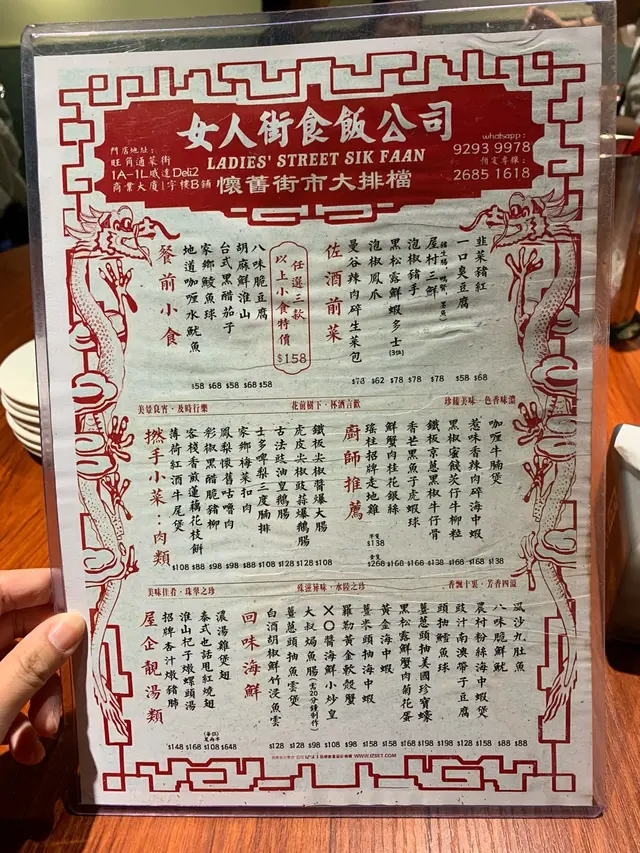 女人街食飯公司
LADIES' STREET SIK FAAN
懷舊街市大排檔
門店地址：
旺角通菜街
1A-1L威達Deli2
商業大廈1字樓B舖
whatsapp：
9293 9978
預定專線：
2685 1618
韭菜豬紅
一口臭豆腐
屋村三鮮
泡椒豬手
黑松露鮮蝦多士(3件)
泡椒鳳爪
曼谷辣肉碎生菜包
佐酒前菜
任選三款
以上小食特價
$158
八味脆豆腐
胡麻鮮淮山
台式黑醋茄子
家鄉鯪魚球
地道咖喱水魷魚
餐前小食
$58 $68 $68 $58
$78 $62 $78 $78 $78 $58 $68
美景良宵·及時行樂
花前樹下·杯酒言歡
珍饈美味一色香味濃
咖喱牛腩煲
惹味香辣肉碎海中蝦
黑椒蜜餞芡仔牛柳粒
鐵板京蔥黑椒牛仔骨
香芒黑魚子虎蝦球
鮮蟹肉桂花銀絲
瑤柱招牌走地雞
廚師推薦
鐵板尖椒醬爆大腸
虎皮尖椒豉蒜爆鵝腸
古法豉油皇鵝腸
士多啤梨三度腩排
家鄉梅菜扣肉
鳳梨懷舊咕嚕肉
彩椒黑醋脆豬柳
客棧香煎蓮藕花枝餅
薄荷紅酒牛尾煲
撚手小菜：肉類
半隻
$138
全隻
$108 $88 $98 $98 $88 $108 $128 $128 $108
$268 $168 $168 $168 $168 $168 $138
美味佳肴·珠翠之珍
殊滋異味·水陸之珍
香飄十裏·芳香四溢
風沙九肚魚
八味脆鮮魷
農村粉絲海中蝦煲
豉汁南澳帶子豆腐
頭抽鱈魚球
薑蔥頭抽美國珍寶蠔
黑松露鮮蟹肉菊花蛋
黃金海中蝦
薑米頭抽海中蝦
羅勒黃金軟殼蟹
XO醬海鮮小炒皇
大叔焗魚腸(需20分鐘制作)
薑蔥頭抽魚雲煲
白酒胡椒鮮竹浸魚雲
回味海鮮
濃湯雞煲翅
泰式也話甩紅燒翅
淮山杞子燉螺頭湯
招牌杏汁燉豬肺
屋企靚湯類
$148 $168 $108 $648
$128 $128 $98 $108 $98 $158 $158 $168 $198 $198 $128 $158 $88 $88
WWW.IZSET.COM